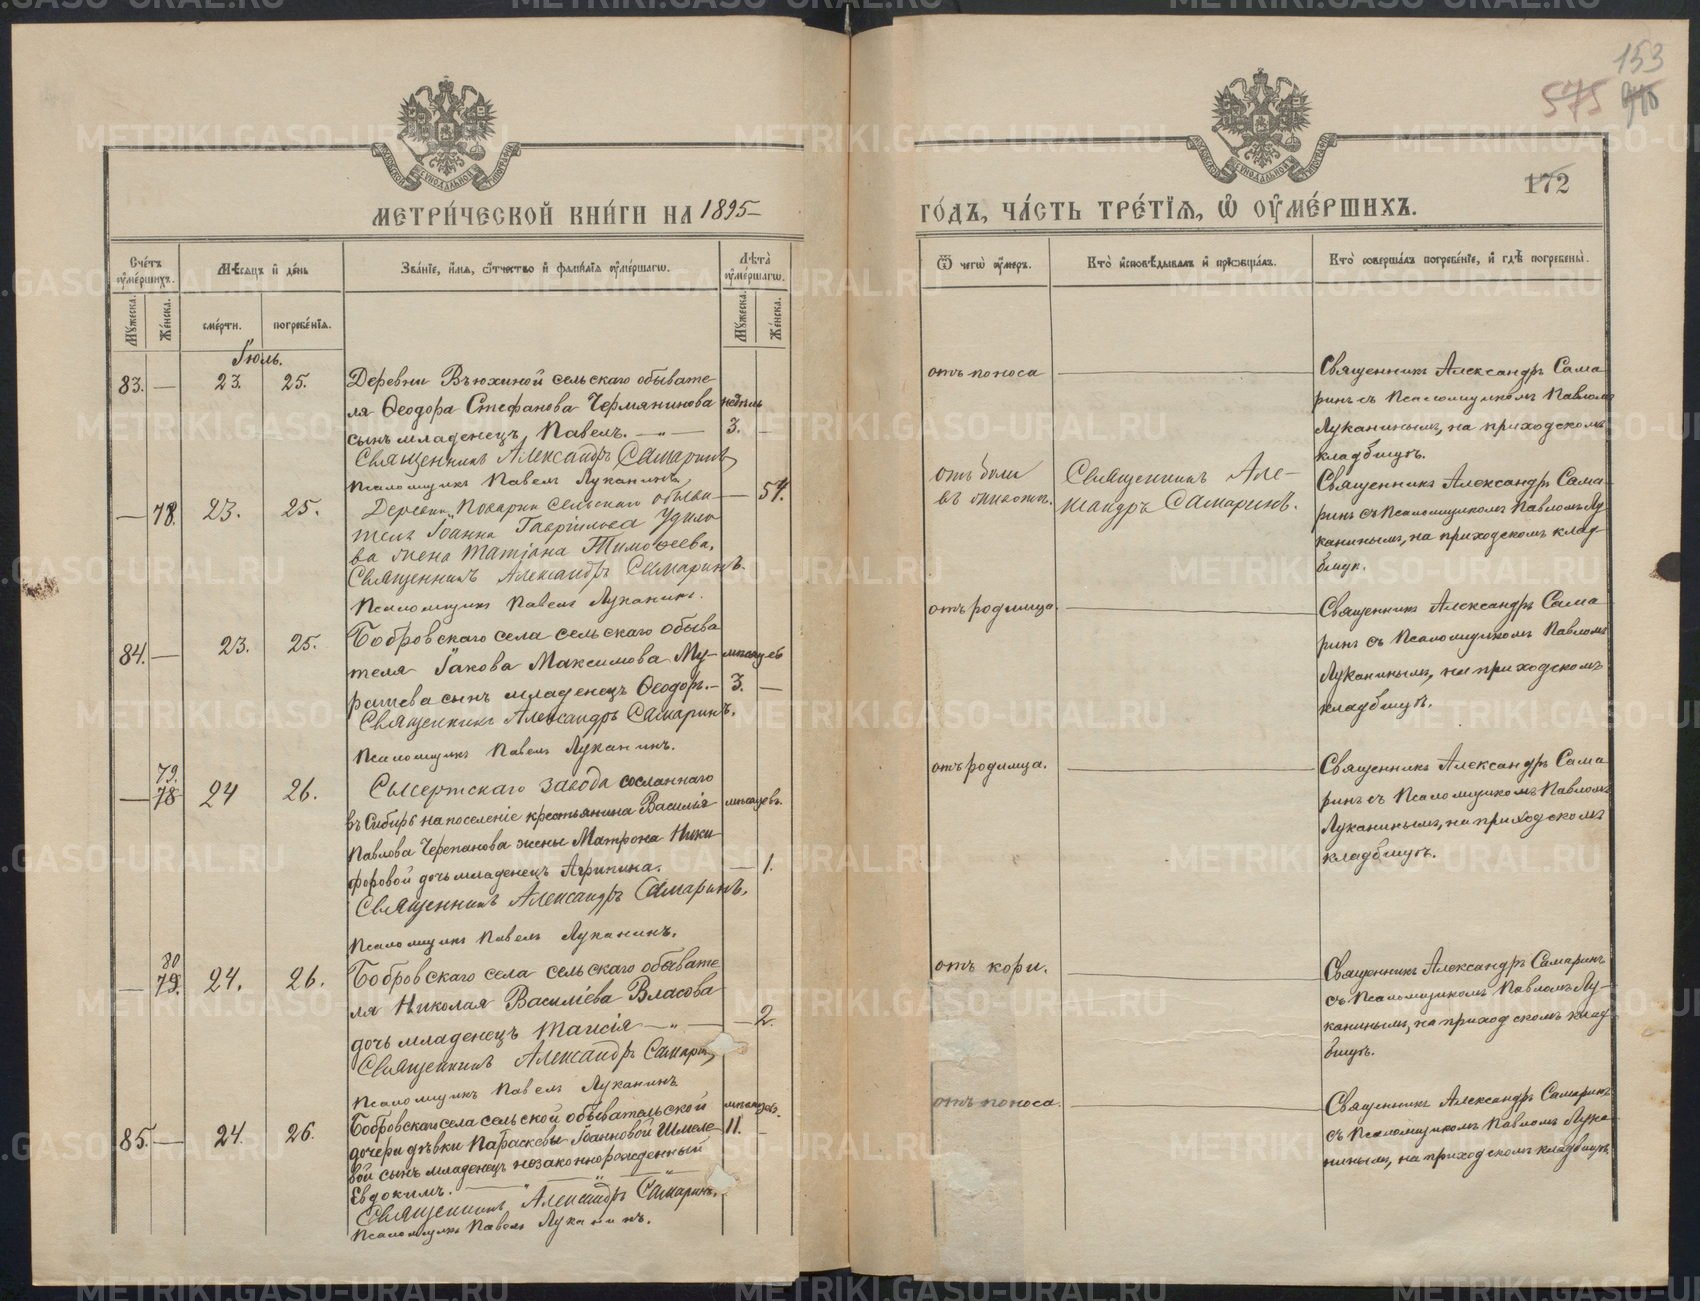 153
575
172
МЕТРИ́ЧЕСКОЙ КНИ́ГИ НА 1895
ГО́ДЪ, ЧА́СТЬ ТРЕ́ТІѦ, Ѡ ОУМЕ́РШИХЪ.
Сче́тъ оумéршихъ.
Мꙋ́жеска.
Же́нска.
Мѣ́сѧцъ и де́нь
сме́рти.
погребе́нїѧ.
Зва́нїе, и́мѧ, ѿчество и фами́лїѧ оумéршагѡ.
Лѣ́та оумéршагѡ.
Мꙋ́жеска.
Же́нска.
Ѿ чегѡ̀ оу́меръ.
Кто̀ и҆сповѣ́дывалъ и҆ прїѡбща́лъ.
Кто̀ соверша́лъ погребе́нїе, и҆ гдѣ̀ погребены̀.
Іюль.
83. — 23. 25.
Деревни Вьюхиной сельскаго обывате-
ля Ѳеодора Стефанова Чермянинова недѣль
сынъ младенецъ Павелъ. — „ — 3. —
Священникъ Александръ Самаринъ
Псаломщикъ Павелъ Луканинъ.
отъ поноса
Священникъ Александръ Сама
ринъ съ Псаломщикомъ Павломъ
Луканинымъ, на приходскомъ
кладбищѣ.
— 78. 23. 25.
Деревни Поварни сельскаго обыва- — 54.
теля Іоанна Гавріилова Удило
ва жена Татіана Тимоѳеева.
Священникъ Александръ Самаринъ.
Псаломщикъ Павелъ Луканинъ.
отъ боли
въ животѣ.
Священникъ Але-
ксандръ Самаринъ.
Священникъ Александръ Сама-
ринъ съ Псаломщикомъ Павломъ Лу-
канинымъ, на приходскомъ клад-
бищѣ.
84. — 23. 25.
Бобровскаго села сельскаго обыва
теля Іакова Максимова Му- мѣсяцевъ
рашева сынъ младенецъ Ѳеодоръ. — 3. —
Священникъ Александръ Самаринъ.
Псаломщикъ Павелъ Луканинъ.
отъ родимца
Священникъ Александръ Сама
ринъ съ Псаломщикомъ Павломъ
Луканинымъ, на приходскомъ
кладбищѣ.
79.
— 78 24 26.
Сысертскаго завода сосланнаго
въ Сибирь на поселеніе крестьянина Василія мѣсяцевъ.
Павлова Черепанова жены Матрона Ники
форовой дочь младенецъ Агрипина. — 1.
Священникъ Александръ Самаринъ.
Псаломщикъ Павелъ Луканинъ.
отъ родимца.
Священникъ Александръ Сама
ринъ съ Псаломщикомъ Павломъ
Луканинымъ, на приходскомъ
кладбищѣ.
80
— 79. 24. 26.
Бобровскаго села сельскаго обывате
ля Николая Василіева Власова
дочь младенецъ Таисія — „ — — 2.
Священникъ Александръ Самаринъ
Псаломщикъ Павелъ Луканинъ
отъ кори.
Священникъ Александръ Самаринъ
съ Псаломщикомъ Павломъ Лу-
канинымъ, на приходскомъ клад-
бищѣ.
85. — 24. 26.
Бобровскаго села сельской обывательской мѣсяцевъ.
дочери дѣвки Параскевы Іоанновой Шмеле- 11. —
вой сынъ младенецъ незаконнорожденный
Евдокимъ. — „ —
Священникъ Александръ Самаринъ.
Псаломщикъ Павелъ Луканинъ.
отъ поноса.
Священникъ Александръ Самаринъ
съ Псаломщикомъ Павломъ Лука-
нинымъ, на приходскомъ кладбищѣ.
METRIKI.GASO-URAL.RU